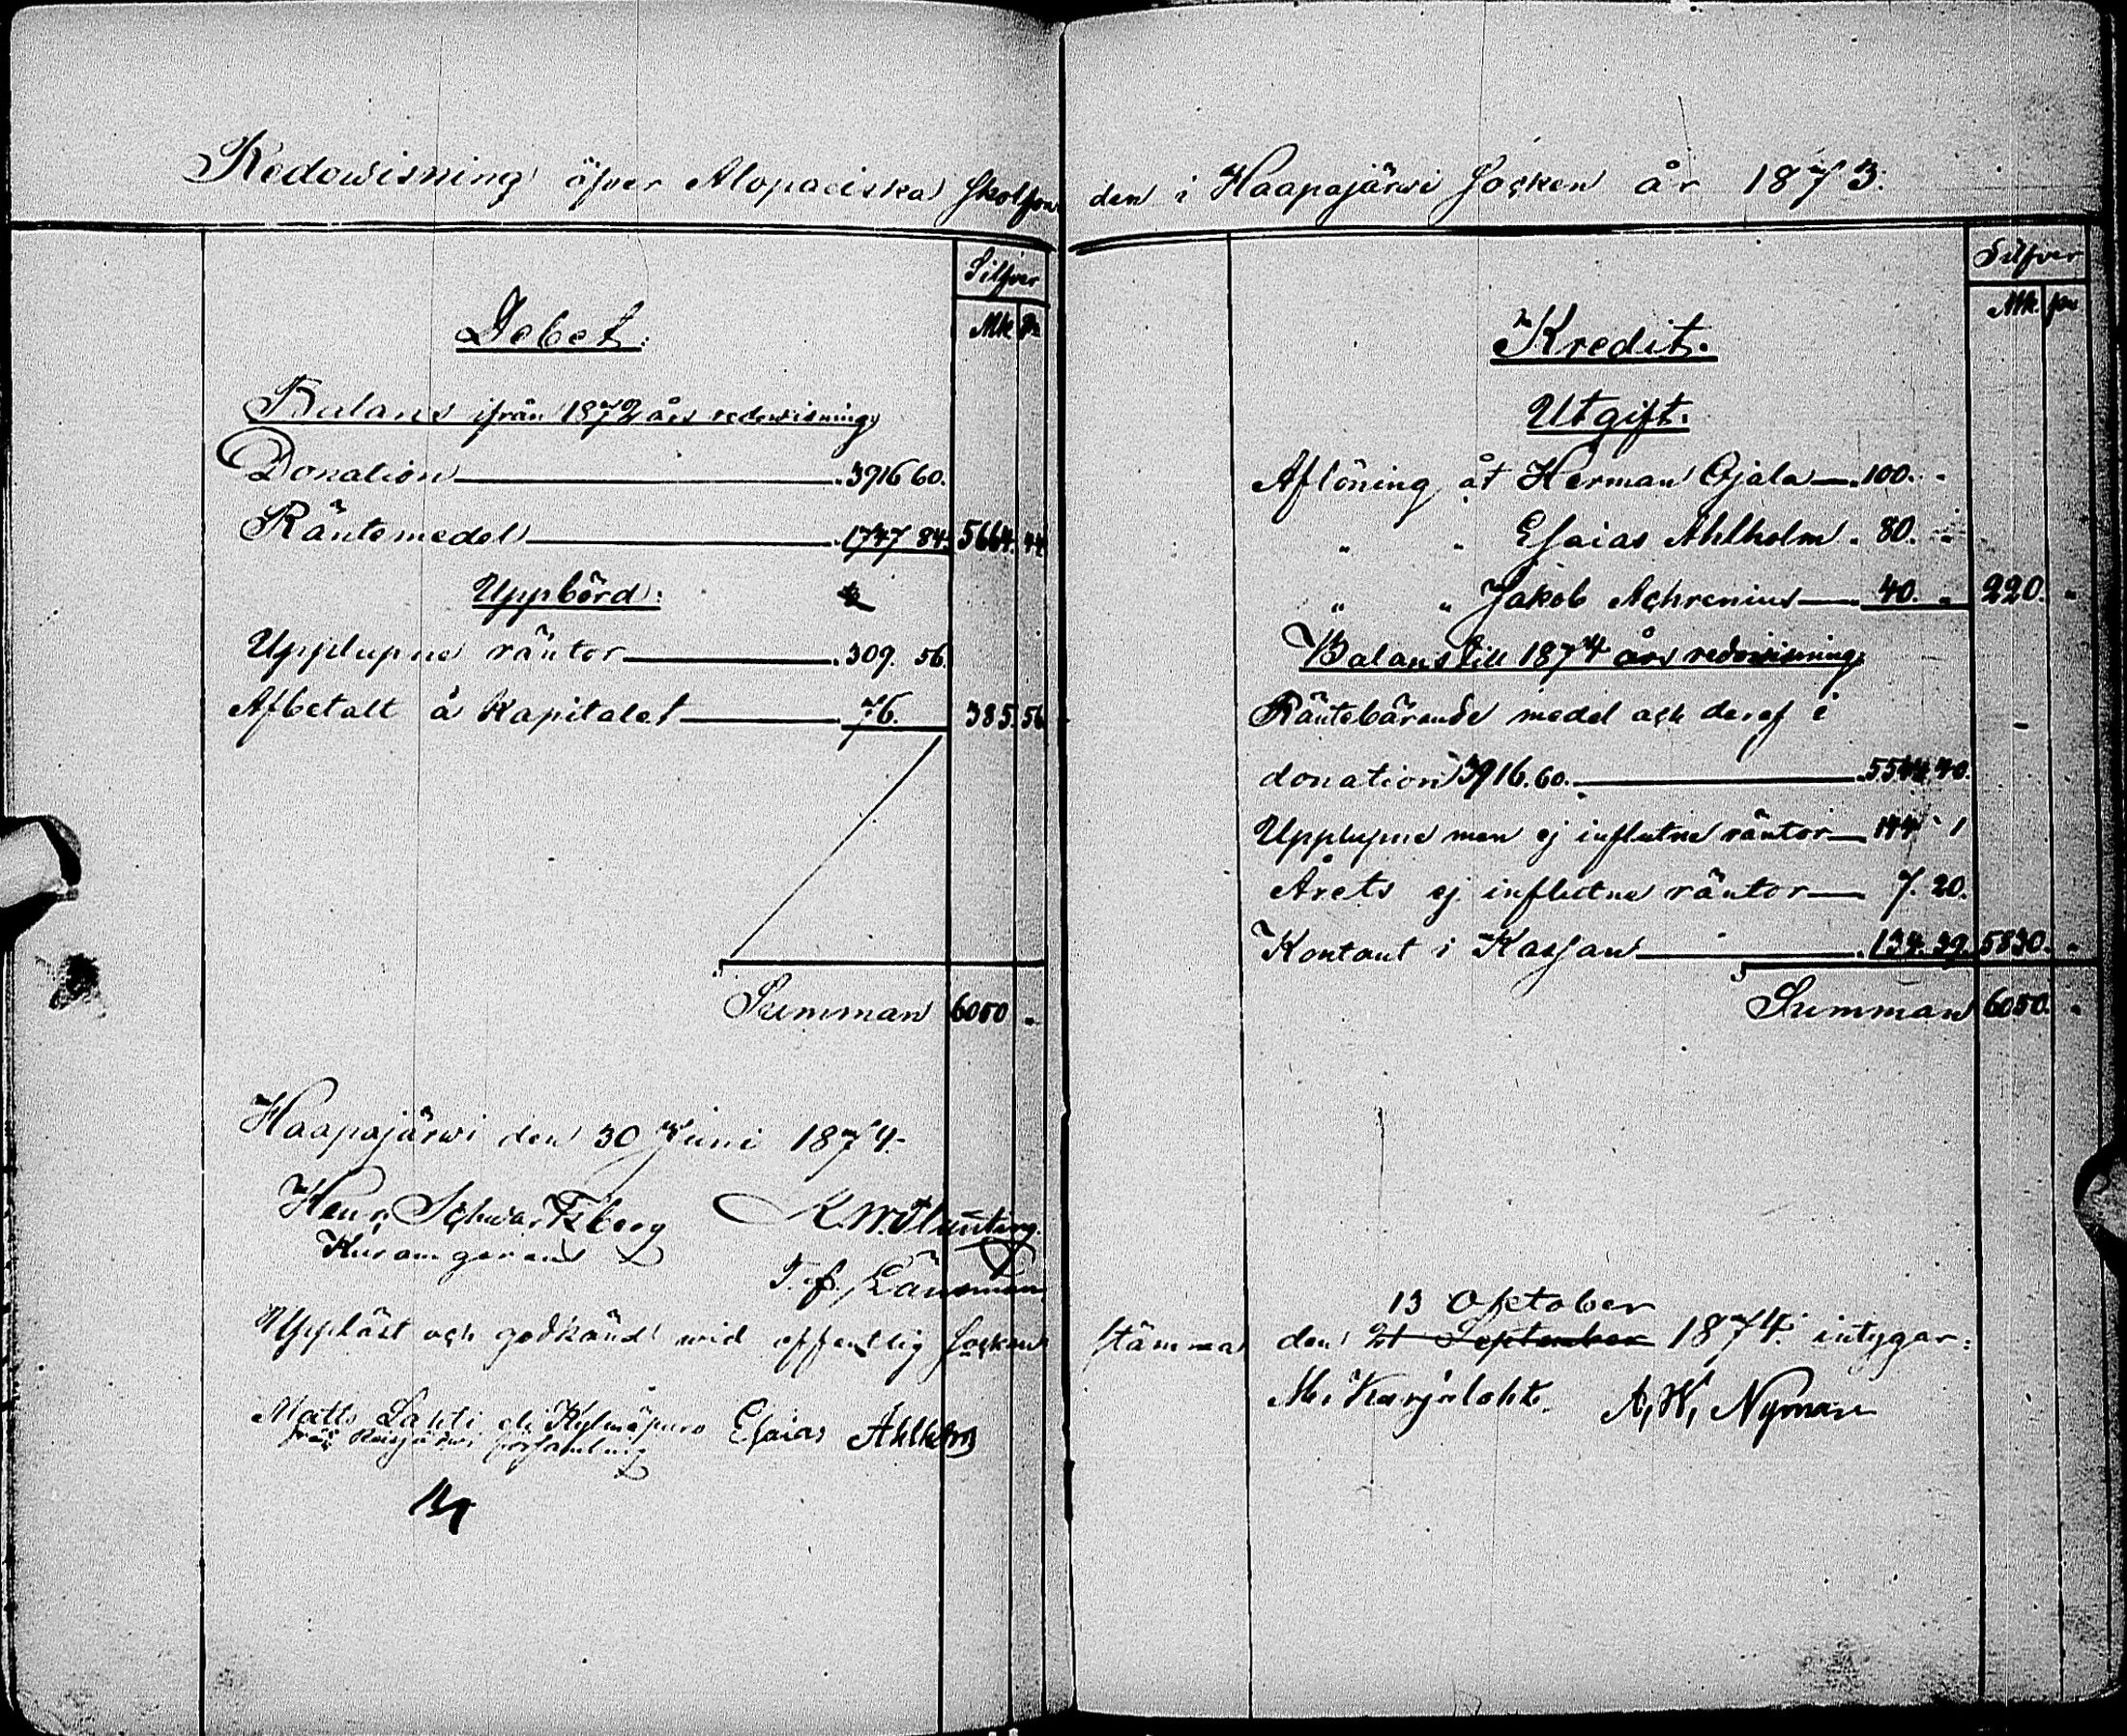 Redowisning öfver Alopaeiska skolfon
Silfver
Debet. Mk p
Balans ifrån 1872 års redowisning
Donation 3916 60.
Räntemedel 1747 84. 5664. 44
Uppbörd.
Upplupne räntor 309. 56
Afbetalt å Kapitalet 76. 385. 56
Summan 6050 "
Haapajärwi den 30 Juni 1874.
Henr Schwartzberg K. W.
T. f. Länsman
Uppläst och godkänd wid offentlig socken
Matts Lahti Esaias Ahlholm
församling
den i Haapajärwi Socken år 1873.
Silfver
Mk. p
Kredit.
Utgift.
Aflöning åt Herman Ojala 100. "
" " Esaias Ahlholm. 80. "
" " Jakob Achrenius 40. " 220. "
Balans till 1874 års redowisning.
Räntebärande medel och deraf i
donation 3916. 60. 5544. 40.
Upplupne men ej influtne räntor 144 1
Årets ej influtne räntor 7. 20.
Kontant i Kassan 134. 39. 5830. "
Summan 6050. "
13 Oktober
stämma den 21 September 1874 intygar:
M. Karjalahti. A. K. Nyman